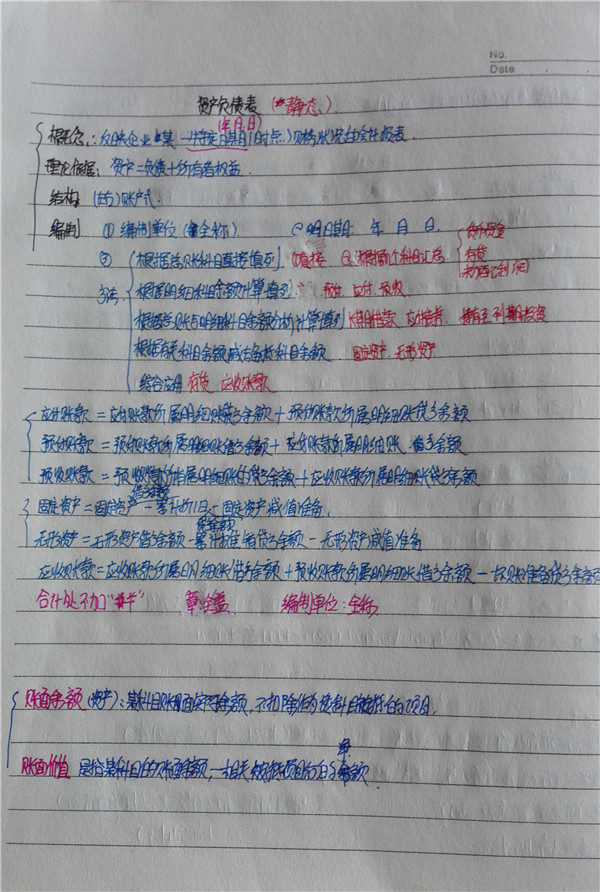 No.
Date
资产负债表 (*静态)
(年月日)
概念:反映企业某一特定日期(时点)财务状况的会计报表
理论依据:资产=负债+所有者权益
结构 (左右)账户式
编制 ①编制单位(全称) ②日期: 年 月 日
② 根据总账科目直接填列 ①直接 ②根据几个科目汇总 货币资金
存货
未分配利润
方法 根据明细科目余额计算填列 预付、应付、预收
根据总账与明细科目余额分析计算填列 长期借款 应付债券 持有至到期投资
根据有关科目余额减去备抵科目余额 固定资产、无形资产
综合应用 存货 应收账款
应付账款=应付账款所属明细账贷方余额+预付账款所属明细账贷方余额
预付账款=预付账款所属明细账借方余额+应付账款所属明细账 借方余额
预收账款=预收账款所属明细账的贷方余额+应收账款所属明细账贷方余额
固定资产=固定资产-累计折旧-固定资产减值准备,
无形资产=无形资产借方余额-累计摊销贷方余额-无形资产减值准备
应收账款=应收账款所属明细账借方余额+预收账款所属明细账借方余额-坏账准备贷方余额
合计处不加“#” 章全盖 编制单位:全称
账面余额(资产):某科目账面实际余额,不扣除作为该科目备抵的项目.
账面价值 是指某科目的账面余额,-相关备抵项目后的净额